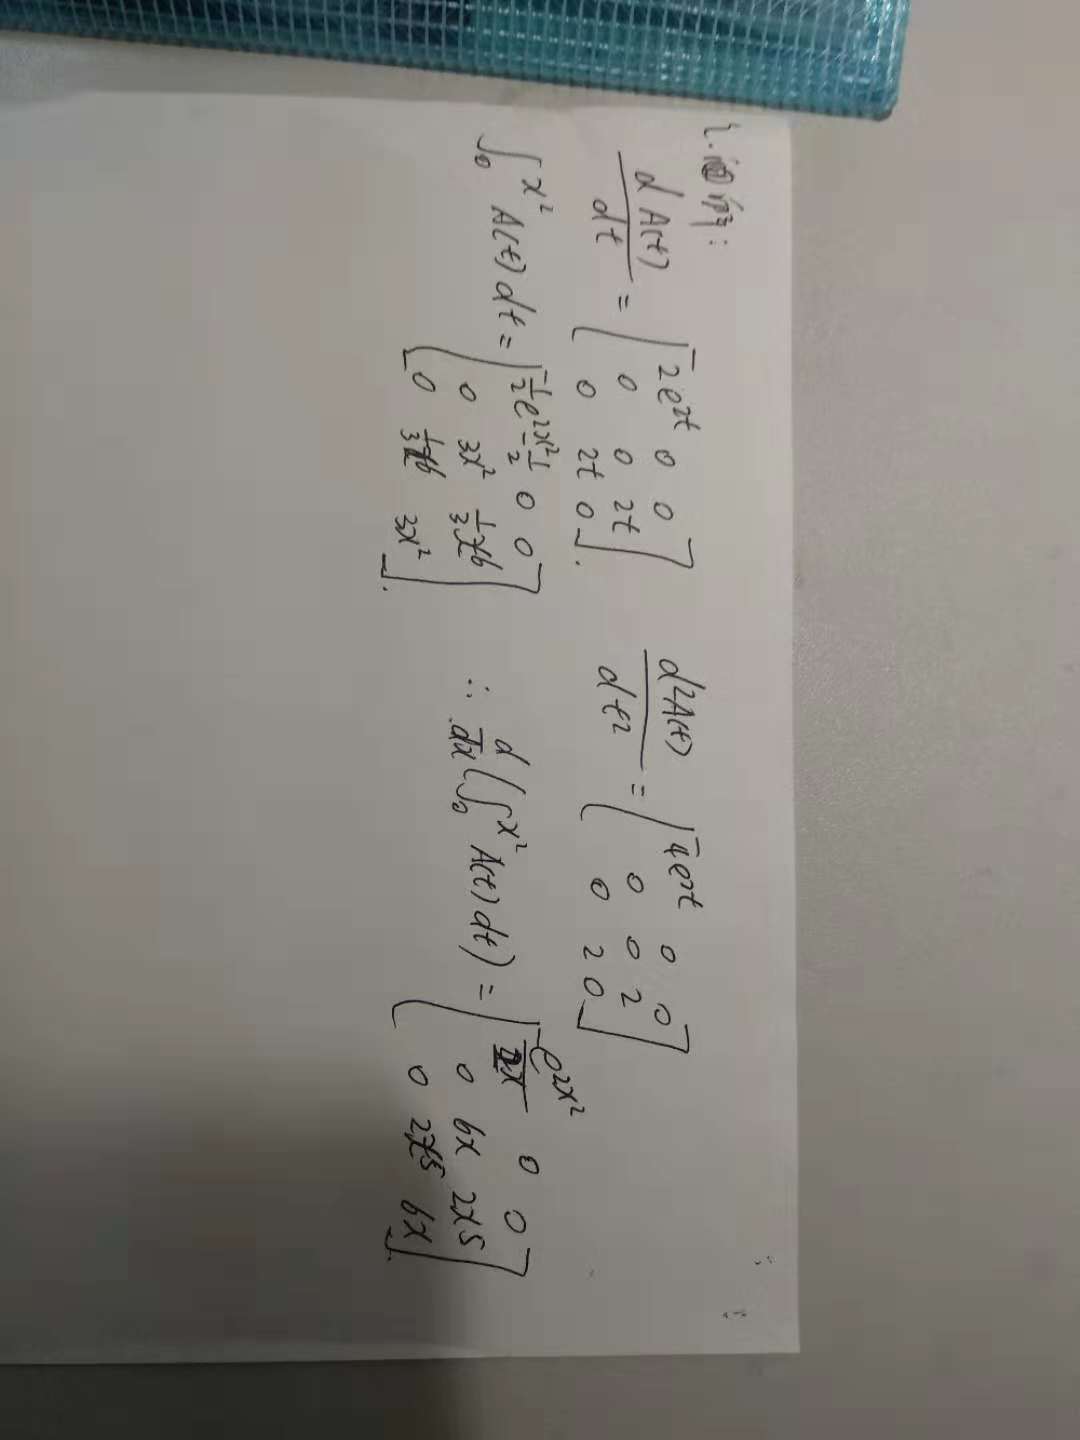 解:
dA(t)/dt = [2e^{2t} 0 0; 0 0 2t; 0 2t 0]. d²A(t)/dt² = [4e^{2t} 0 0; 0 0 2; 0 2 0]
∫₀^{x²} A(t)dt = [½e^{2x²}-½ 0 0; 0 3x² ⅓x⁶; 0 ⅓x⁶ 3x²]. ∴ d/dx(∫₀^{x²} A(t)dt) = [e^{2x²} 0 0; 0 6x 2x⁵; 0 2x⁵ 6x].